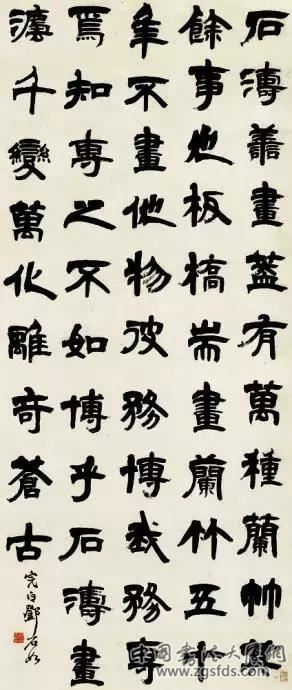 石濤善畫蓋有萬種蘭竹其
餘事也板橋耑畫蘭竹五十
年不畫他物彼務博我務專
焉知專之不如博乎石濤畫
灋千變萬化離奇蒼古
完白鄧石如
www.zgsfds.com